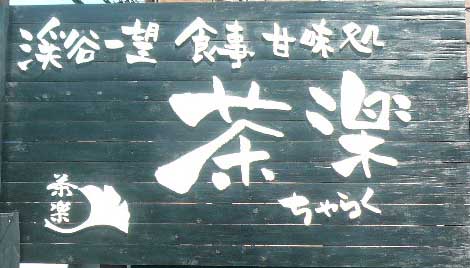 渓谷一望 食事 甘味処
茶楽
ちゃらく
茶楽